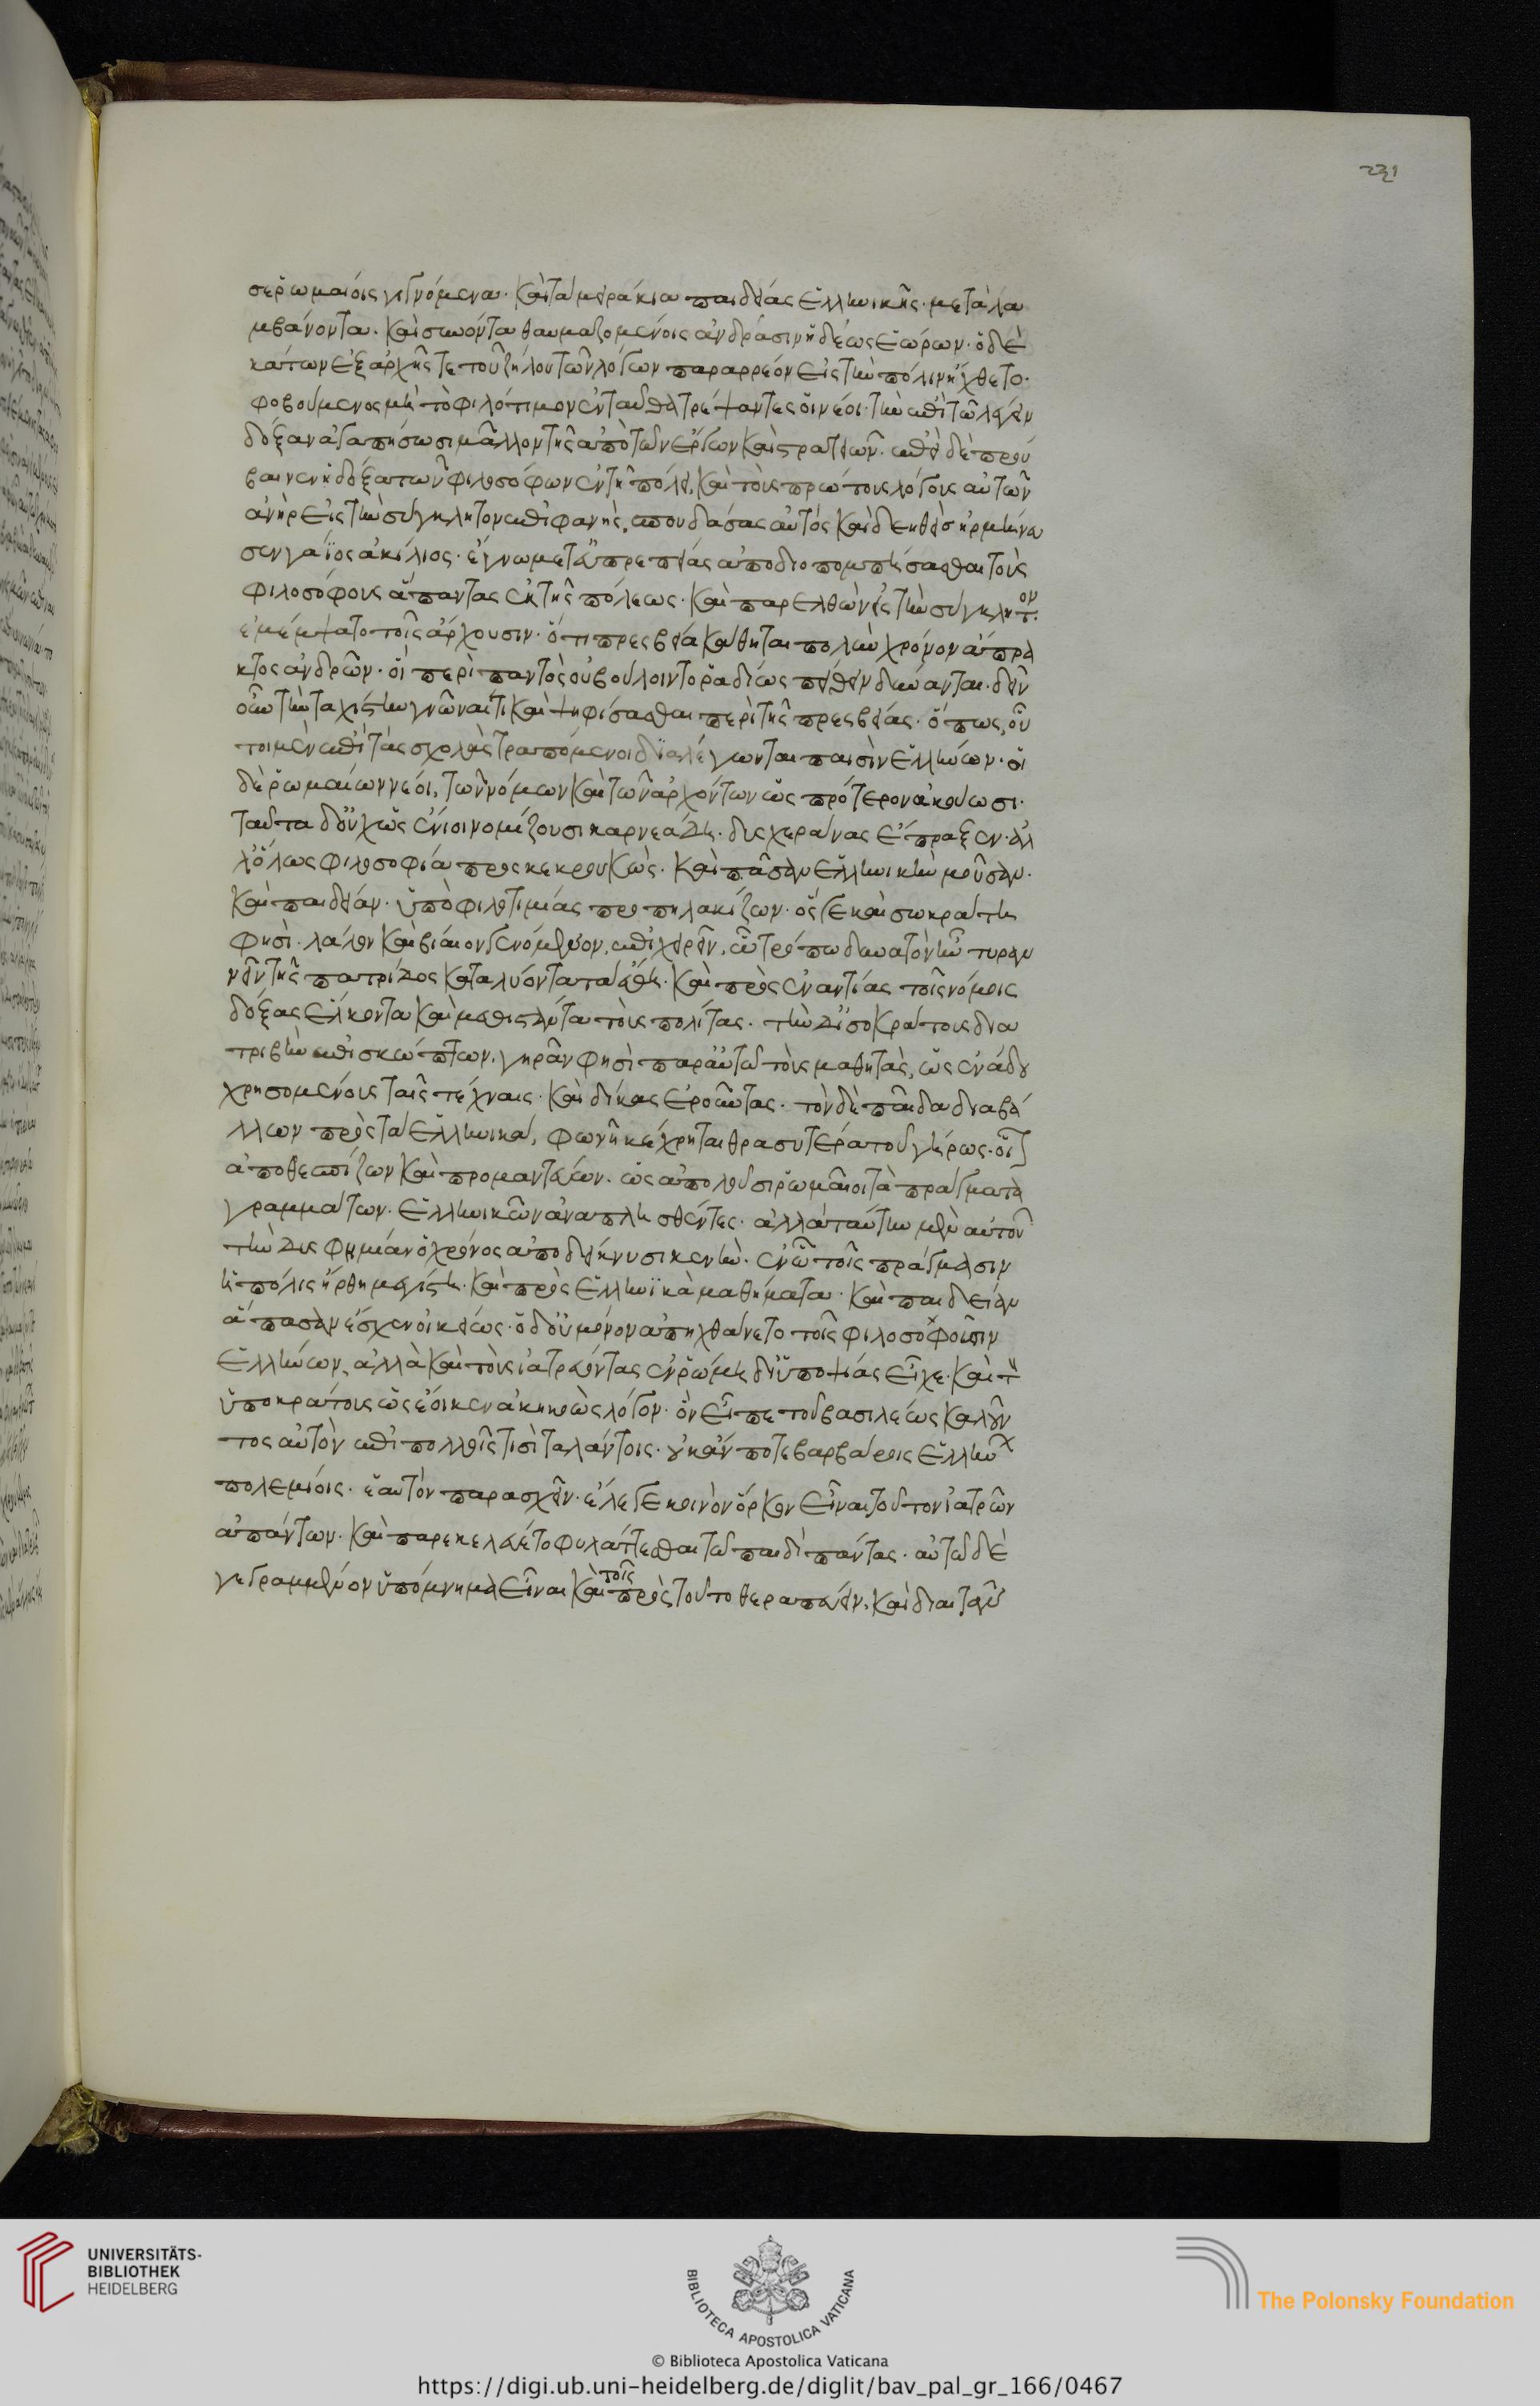 231
σε ῥωμαίοις γιγνόμενα· καὶ τὰ μειράκια παιδείας ἑλληνικῆς· μεταλα
μβάνοντα· καὶ συνόντα θαυμαζομένοις ἀνδράσιν ἡδέως ἑώρων· ὁ δὲ
κάτων ἐξ ἀρχῆς τε τοῦ ζήλου τῶν λόγων παραρρέον εἰς τὴν πόλιν ἤχθετο·
φοβούμενος μὴ τὸ φιλότιμον ἐνταῦθα τρέψαντες οἱ νέοι· τὴν ἐπὶ τῶ λέγειν
δόξαν ἀγαπήσωσι μᾶλλον τῆς ἀπὸ τῶν ἔργων καὶ στρατειῶν· ἐπεὶ δὲ πρού
βαινεν ἡ δόξα τῶν φιλοσόφων ἐν τῆ πόλει, καὶ τοὺς πρώτους λόγους αὐτῶν
ἀνὴρ εἰς τὴν σύγκλητον ἐπιφανὴς, σπουδάσας αὐτὸς καὶ δεηθεὶς ἡρμήνευ
σεν γάϊος ἀκίλιος· ἔγνω μετ' εὐπρεπείας ἀποδιοπομπήσασθαι τοὺς
φιλοσόφους ἅπαντας ἐκ τῆς πόλεως· καὶ παρελθὼν εἰς τὴν σύγκλητον
ἐμέμψατο τοῖς ἄρχουσιν· ὅτι πρεσβεία κάθηται πολὺν χρόνον ἄπρα
κτος ἀνδρῶν· οἳ περὶ παντὸς οὗ βούλοιντο ῥαδίως πείθειν δύνανται· δεῖν
οὖν τὴν ταχίστην γνῶναί τι καὶ ψηφίσασθαι περὶ τῆς πρεσβείας· ὅπως, οὗ
τοι μὲν ἐπὶ τὰς σχολὰς τραπόμενοι διαλέγωνται παισὶν ἑλλήνων· οἱ
δὲ ῥωμαίων νέοι, τῶν νόμων καὶ τῶν ἀρχόντων ὡς πρότερον ἀκούωσι·
ταῦτα δ' οὐχ ὡς ἔνιοι νομίζουσι καρνεάδη· δυσχεράνας ἔπραξεν· ἀλ
λ' ὅλως φιλοσοφία προσκεκρουκὼς· καὶ πᾶσαν ἑλληνικὴν μοῦσαν·
καὶ παιδείαν· ὑπὸ φιλοτιμίας προπηλακίζων· ὅς γε καὶ σωκράτη
φησὶ· λάλον καὶ βίαιον γενόμενον, ἐπιχειρεῖν, ὧ τρόπω δυνατὸν ἦν τυραν
νεῖν τῆς πατρίδος καταλύοντα τὰ ἔθη· καὶ πρὸς ἐναντίας τοῖς νόμοις
δόξας ἕλκοντα καὶ μεθιστάντα τοὺς πολίτας· τὴν δ' ἰσοκράτους δια
τριβὴν ἐπισκώπτων, γηρᾶν φησὶ παρ' αὐτῶ τοὺς μαθητὰς, ὡς ἐν ἅδου
χρησομένους ταῖς τέχναις· καὶ δίκας ἐροῦντας· τὸν δὲ παῖδα διαβά
λλων πρὸς τὰ ἑλληνικὰ, φωνῆ κέχρηται θρασυτέρα τοῦ γήρως· οἷον
ἀποθεσπίζων καὶ προμαντεύων· ὡς ἀπολοῦσι ῥωμαῖοι τὰ πράγματα
γραμμάτων· ἑλληνικῶν ἀναπλησθέντες· ἀλλὰ ταύτην μὲν αὐτοῦ
τὴν δυσφημίαν ὁ χρόνος ἀποδείκνυσι κενὴν· ἐν ὧ τοῖς πράγμασιν
ἡ πόλις ἤρθη μεγίστη· καὶ πρὸς ἑλληνϊκὰ μαθήματα· καὶ παιδείαν
ἅπασαν ἔσχεν οἰκείως· ὁ δ' οὐ μόνον ἀπηχθάνετο τοῖς φιλοσοφοῦσιν
ἑλλήνων, ἀλλὰ καὶ τοὺς ἰατρεύοντας ἐν ῥώμη δι' ὑποψίας εἶχε· καὶ τὸν
ἱπποκράτους ὡς ἔοικεν ἀκηκοὼς λόγον· ὃν εἶπε τοῦ βασιλέως καλοῦν
τος αὐτὸν ἐπὶ πολλοῖς τισὶ ταλάντοις· οὐκ ἄν ποτε βαρβάροις ἑλλήνων
πολεμίοις· ἑαυτὸν παρασχεῖν· ἔλεγε κοινὸν ὅρκον εἶναι τοῦτον ἰατρῶν
ἁπάντων· καὶ παρεκελεύετο φυλάττεσθαι τῶ παιδὶ πάντας· αὐτῶ δὲ
γεγραμμένον ὑπόμνημα εἶναι καὶ τοῖς πρὸς τοῦτο θεραπεύειν, καὶ διαιτᾶν
UNIVERSITÄTS-
BIBLIOTHEK
HEIDELBERG
BIBLIOTECA APOSTOLICA VATICANA
The Polonsky Foundation
© Biblioteca Apostolica Vaticana
https://digi.ub.uni-heidelberg.de/diglit/bav_pal_gr_166/0467